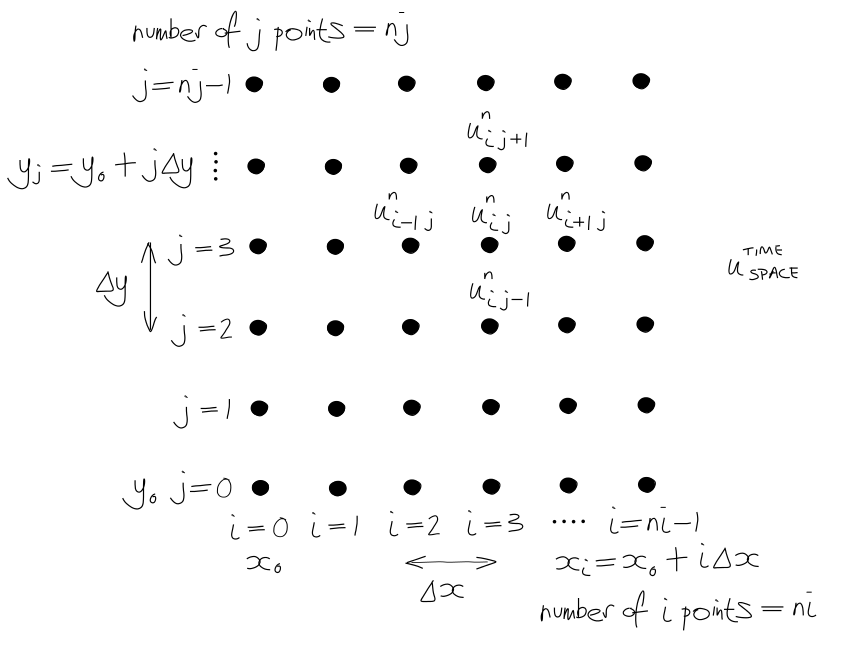 number of j points = nj
j=nj-1
uⁿᵢ ⱼ₊₁
yⱼ = y₀ + jΔy ⋮
uⁿᵢ₋₁ ⱼ uⁿᵢ ⱼ uⁿᵢ₊₁ ⱼ
j=3
u TIME SPACE
Δy
uⁿᵢ ⱼ₋₁
j=2
j=1
y₀ j=0
i=0 i=1 i=2 i=3 .... i=ni-1
x₀ Δx xᵢ = x₀ + iΔx
number of i points = ni